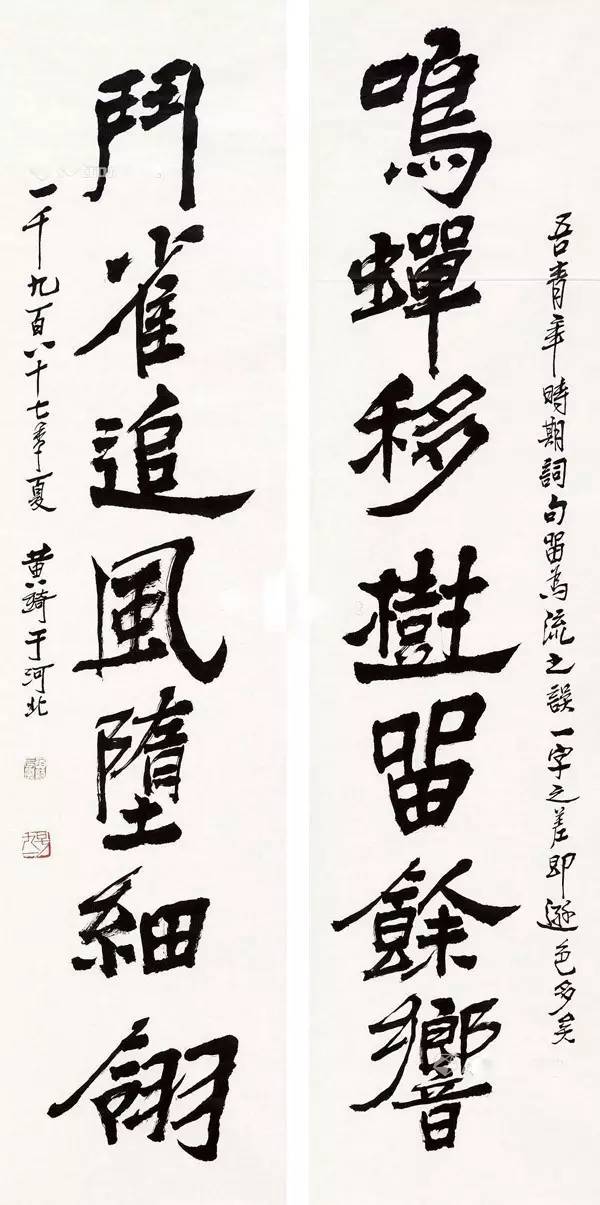 吾青年時期詞句留為流之誤一字之差即遜色多矣
鳴蟬移樹留餘響
鬥雀追風墮細翎
一千九百八十七年夏 黃綺于河北